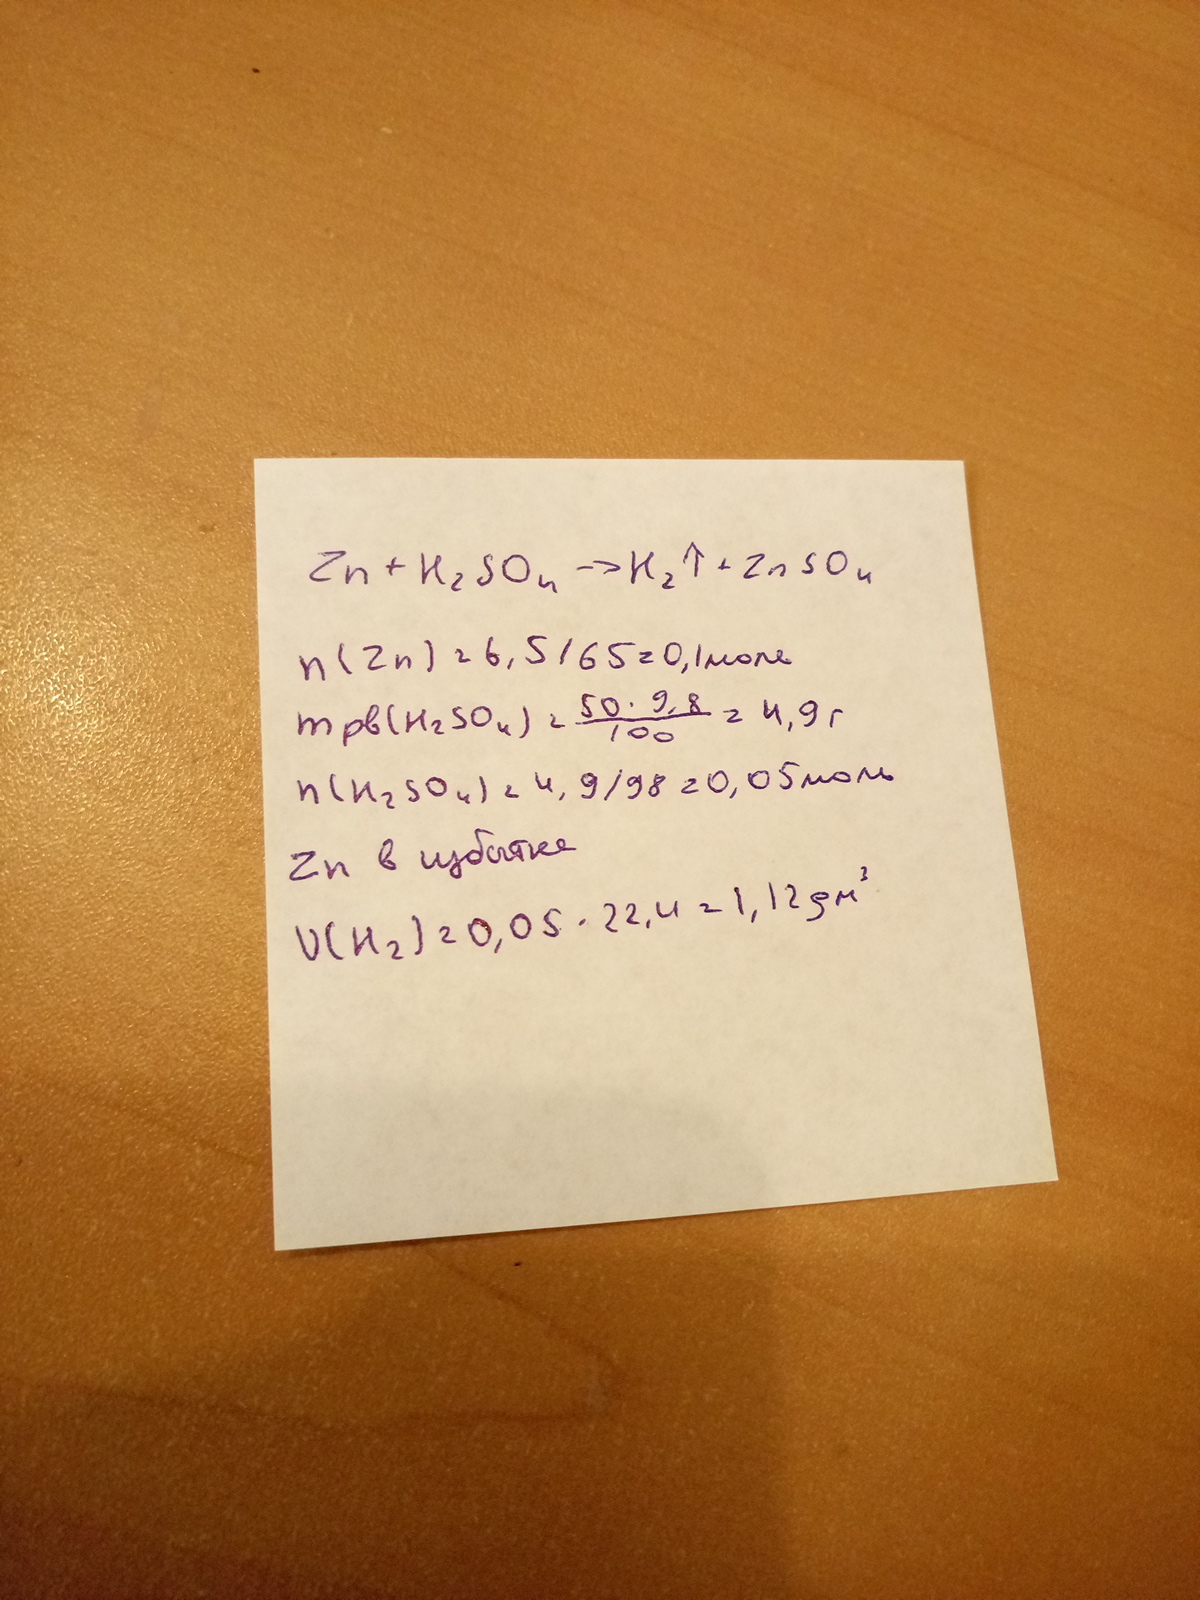 Zn + H₂SO₄ → H₂↑ + ZnSO₄
n(Zn) = 6,5/65 = 0,1моль
m рв(H₂SO₄) = 50·9,8/100 = 4,9г
n(H₂SO₄) = 4,9/98 = 0,05моль
Zn в избытке
V(H₂) = 0,05·22,4 = 1,12дм³